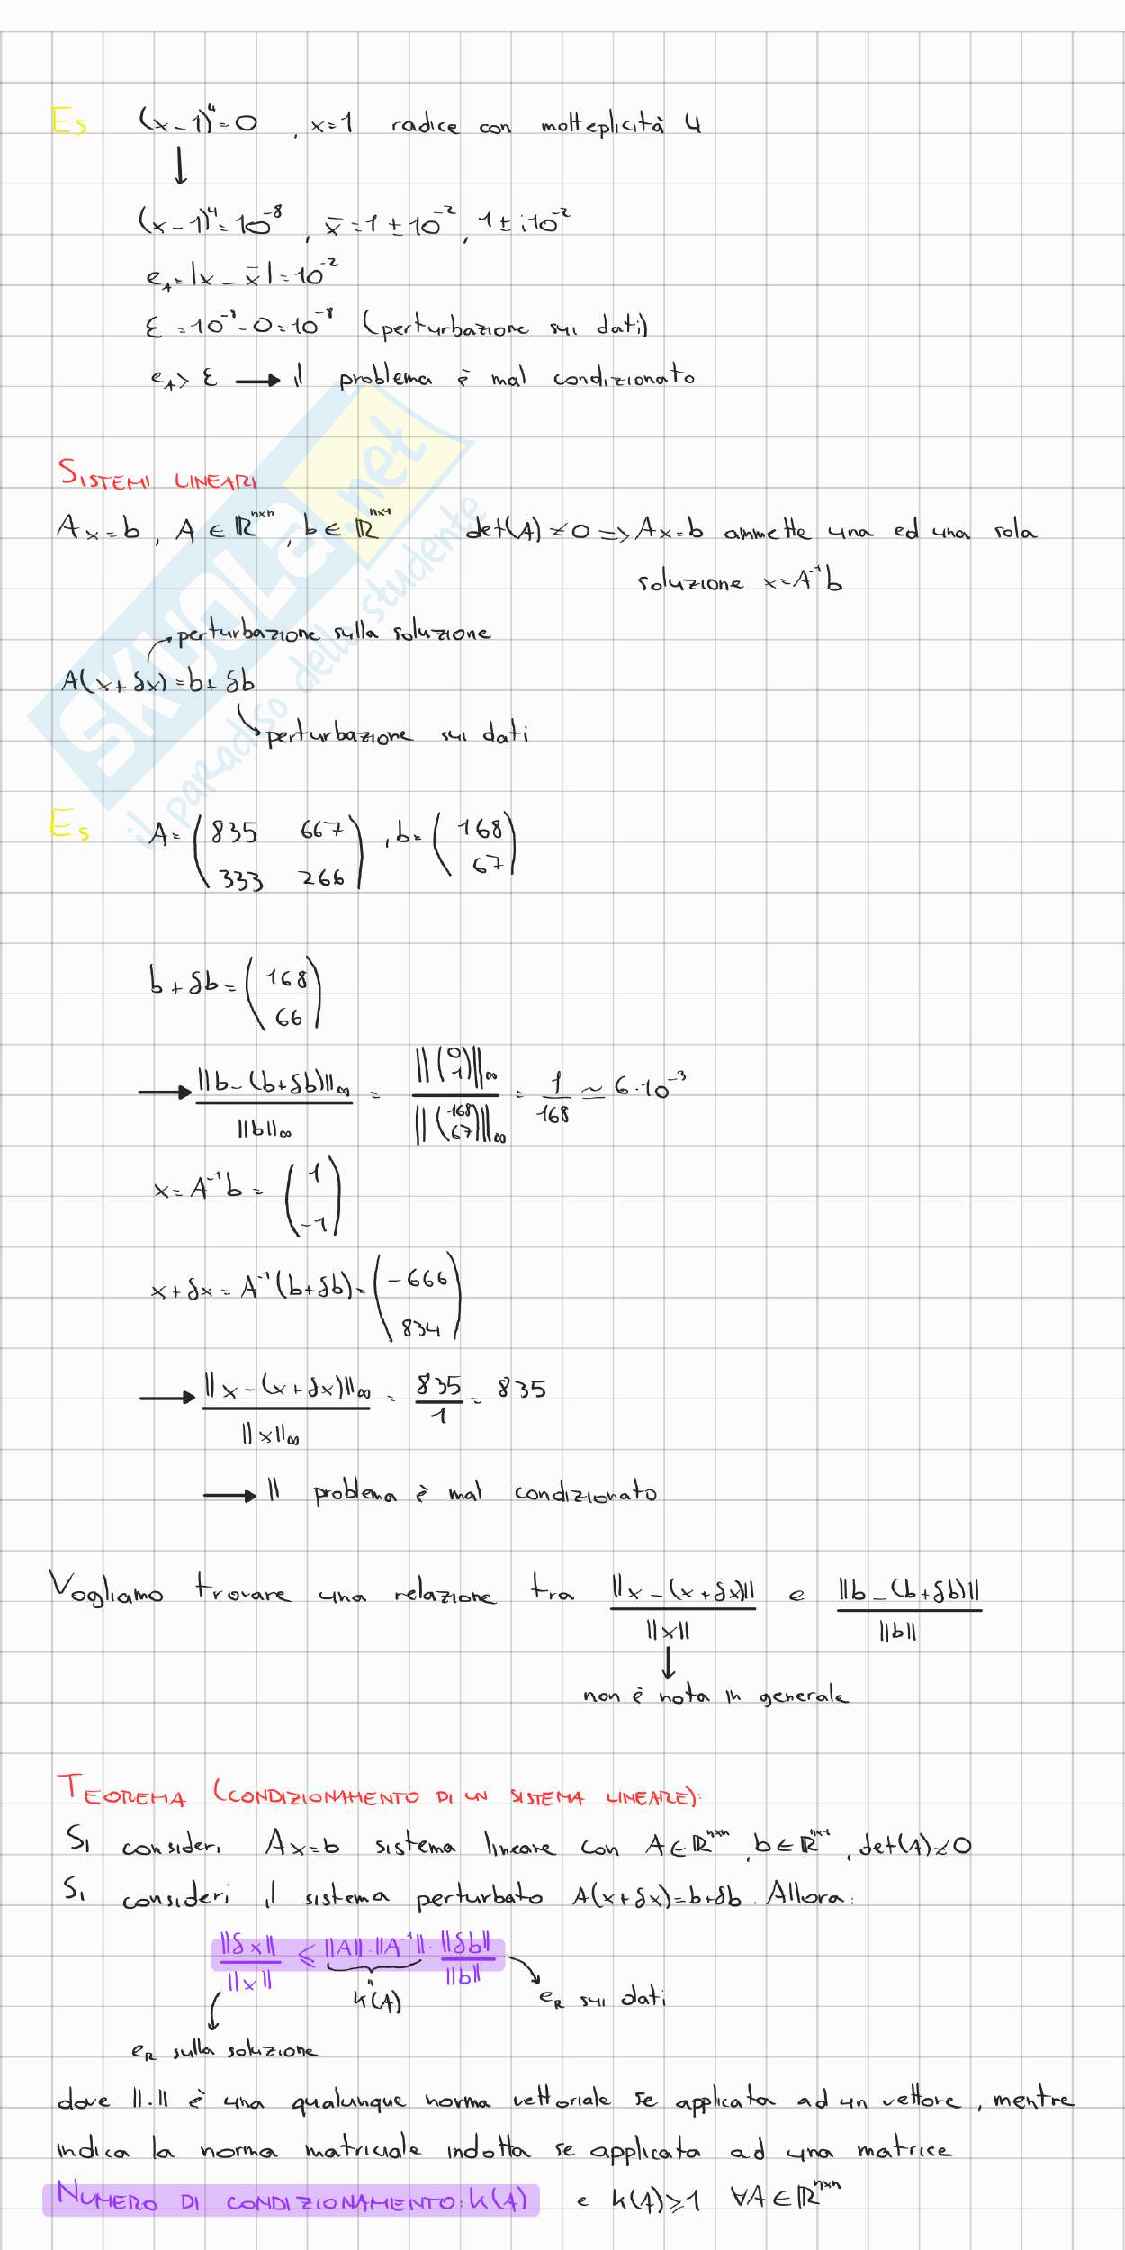 Es (x-1)⁴=0 , x=1 radice con molteplicità 4
↓
(x-1)⁴=10⁻⁸ , x̄=1±10⁻², 1±i10⁻²
e_A=|x-x̄|=10⁻²
ε=10⁻⁸-0=10⁻⁸ (perturbazione sui dati)
e_A>ε → il problema è mal condizionato
SISTEMI LINEARI
Ax=b, A∈ℝⁿˣⁿ, b∈ℝⁿˣ¹ det(A)≠0 => Ax=b ammette una ed una sola
soluzione x=A⁻¹b
→ perturbazione sulla soluzione
A(x+δx)=b+δb
→ perturbazione sui dati
Es A=(835 667; 333 266), b=(168; 67)
b+δb=(168; 66)
→ ||b-(b+δb)||∞ / ||b||∞ = ||(0; 1)||∞ / ||(168; 67)||∞ = 1/168 ≃ 6·10⁻³
x=A⁻¹b=(1; -1)
x+δx=A⁻¹(b+δb)=(-666; 834)
→ ||x-(x+δx)||∞ / ||x||∞ = 835/1 = 835
→ Il problema è mal condizionato
Vogliamo trovare una relazione tra ||x-(x+δx)|| / ||x|| e ||b-(b+δb)|| / ||b||
↓
non è nota in generale
TEOREMA (CONDIZIONAMENTO DI UN SISTEMA LINEARE):
Si consideri Ax=b sistema lineare con A∈ℝⁿˣⁿ, b∈ℝⁿˣ¹, det(A)≠0
Si consideri il sistema perturbato A(x+δx)=b+δb. Allora:
||δx|| / ||x|| ≤ ||A||·||A⁻¹||· ||δb|| / ||b||
k(A) e_R sui dati
e_R sulla soluzione
dove ||.|| è una qualunque norma vettoriale se applicata ad un vettore, mentre
indica la norma matriciale indotta se applicata ad una matrice
NUMERO DI CONDIZIONAMENTO: k(A) e k(A)≥1 ∀A∈ℝⁿˣⁿ
SKUOLA.net
il paradiso dello studente